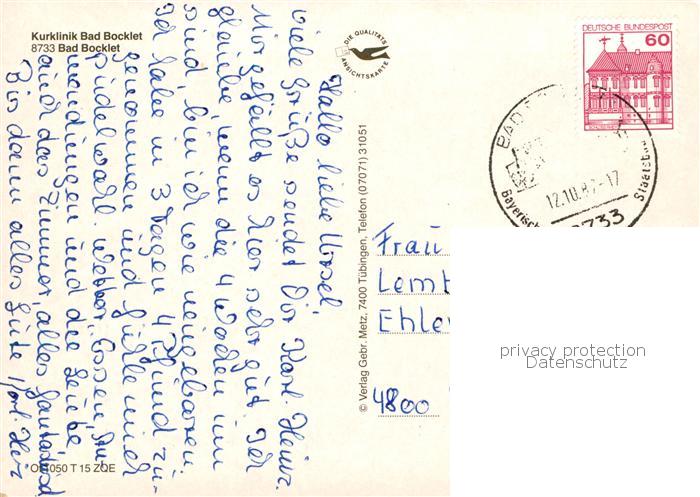 Kurklinik Bad Bocklet
8733 Bad Bocklet
DIE QUALITÄTS
ANSICHTSKARTE
DEUTSCHE BUNDESPOST
60
BAD
12.10.87-17
Bayerisch
Staatsbad
8733
Hallo liebe Ursel,
viele Grüße sendet Dir Karl-Heinz.
Mir gefällt es hier sehr gut. Ich
glaube, wenn die 4 Wochen um
sind bin ich wie neugeboren.
Ich habe in 3 Tagen 4 Pfund zu-
genommen und fühle mich
pudelwohl. Wetter, Essen, An-
wendungen und die Leute,
auch das Zimmer, alles
Bis dann alles Gute
© Verlag Gebr. Metz, 7400 Tübingen, Telefon (07071) 31051
Frau
Lemb
Ehle
4800
privacy protection
Datenschutz
050 T 15 ZQE